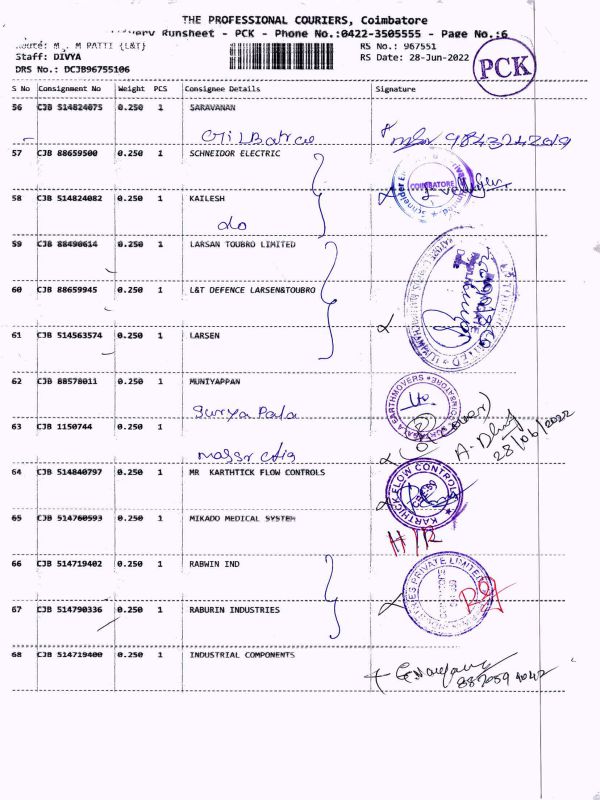 THE PROFESSIONAL COURIERS, Coimbatore
Runsheet - PCK - Phone No.:0422-3505555 - Page No.:6
M PATTI {L&T}
RS No.: 967551
Staff: DIVYA
RS Date: 28-Jun-2022
DRS No.: DCJB96755106
PCK
S No Consignment No Weight PCS Consignee Details Signature
56 CJB 514824075 0.250 1 SARAVANAN
9843242019
57 CJB 88659500 0.250 1 SCHNEIDOR ELECTRIC
COIMBATORE
58 CJB 514824082 0.250 1 KAILESH
do
59 CJB 88490614 0.250 1 LARSAN TOUBRO LIMITED
60 CJB 88659945 0.250 1 L&T DEFENCE LARSEN&TOUBRO
61 CJB 514563574 0.250 1 LARSEN
62 CJB 88578011 0.250 1 MUNIYAPPAN
Surya Pala
EARTHMOVERS
63 CJB 1150744 0.250 1
28/06/2022
64 CJB 514840797 0.250 1 MR KARTHTICK FLOW CONTROLS
KARTHICK FLOW CONTROLS
65 CJB 514760593 0.250 1 MIKADO MEDICAL SYSTEM
H/R
66 CJB 514719402 0.250 1 RABWIN IND
PRIVATE LIMITED
67 CJB 514790336 0.250 1 RABURIN INDUSTRIES
68 CJB 514719400 0.250 1 INDUSTRIAL COMPONENTS